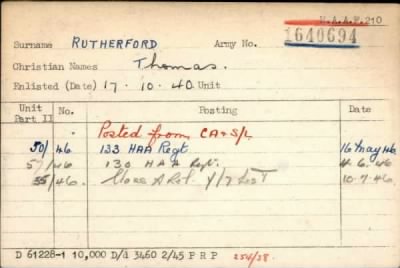 H.A.A.F. 210
Surname RUTHERFORD Army No. 1640694
Christian Names Thomas.
Enlisted (Date) 17. 10. 40 Unit
Unit Part II No. Posting Date
Posted from CA & S/L
50/46 133 HAA Regt 16 May 46
51/46 130 HAA Regt. 4.6.46
55/46 Class A Rel. Y/ List 10.7.46
D 61228-1 10,000 D/d 3460 2/45 P R P 254/28